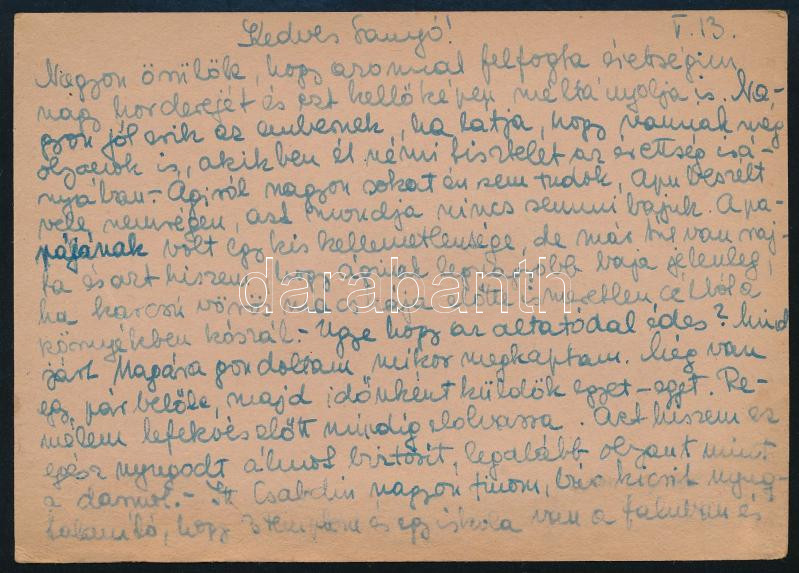 Kedves Sanyó! V. 13.
Nagyon örülök, hogy azonnal felfogta érettségim
nagy horderejét és ezt kellőképen méltányolja is. Na-
gyon jól esik az embernek, ha látja, hogy vannak még
olyanok is, akikben él némi tisztelet az érettség irá-
nyában. - Ágiról nagyon sokat én sem tudok, Apu beszélt
vele nemrégen, azt mondja nincs semmi bajuk. Apa-
pájának volt egy kis kellemetlensége, de már túl van raj-
ta és azt hiszem, hogy Áginak legnagyobb baja jelenleg,
ha karcsú vörös nincs előtte ismeretlen célból a
környékben kószál. - Ugye hogy az altatódal édes? Mind
járt Magára gondoltam mikor megkaptam. Még van
egy pár belőle, majd időnként küldök egyet-egyet. Re-
mélem lefekvés előtt mindig elolvassa. Azt hiszem ez
egész nyugodt álmot biztosit, legalább olyant mint
a -. Itt Csabdin nagyon finom, kicsit nyug-
talanító, hogy 3 templom és egy iskola van a faluban és
darabanth